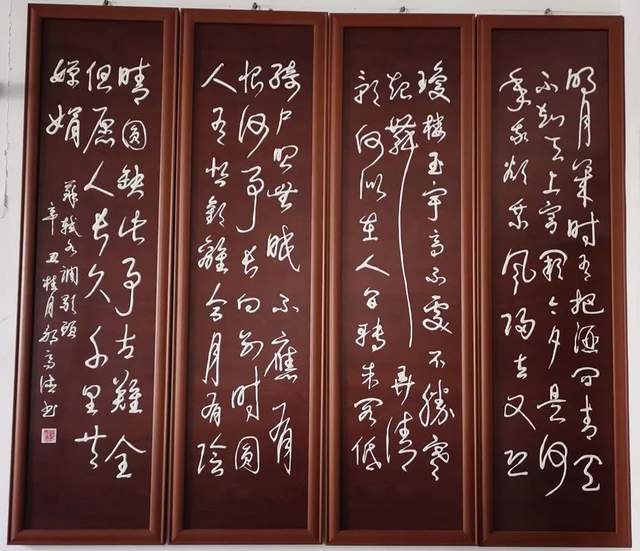 明月幾时有把酒问青天
不知天上宫闕今夕是何
年我欲乘風歸去又恐
瓊楼玉宇高不處不勝寒
起舞弄清
影何似在人间轉朱阁低
绮户照無眠不應有
恨何事长向别时圆
人有悲歡離合月有陰
晴圆缺此事古難全
但愿人长久千里共
嬋娟
蘇轼水调歌頭
辛丑桂月高书